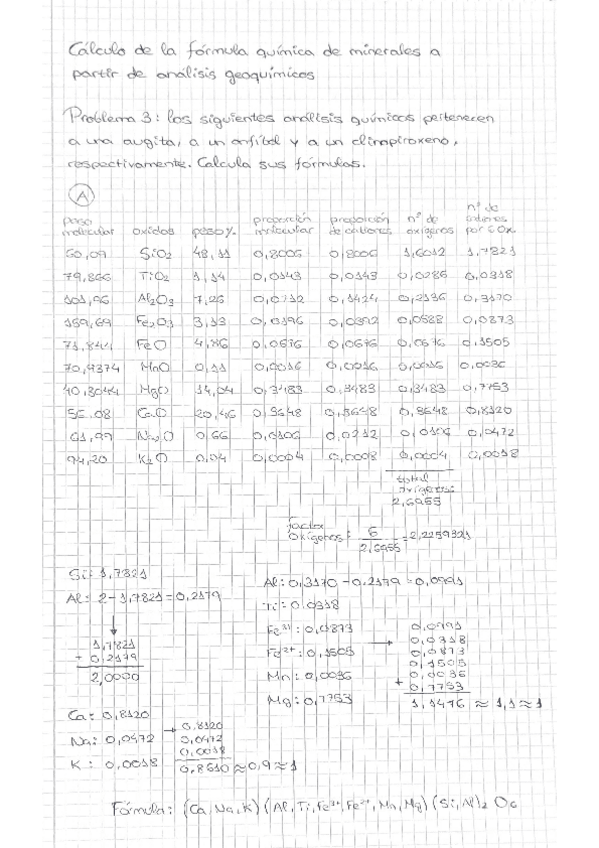 Cálculo de la fórmula química de minerales a
partir de análisis geoquímicos
Problema 3: los siguientes análisis químicos pertenecen
a una augita, a un anfíbol y a un clinopiroxeno,
respectivamente. Calcula sus fórmulas.
A
peso molecular óxidos peso% proporción molecular proporción de cationes nº de oxígenos nº de cationes por 6 OX.
60,09 SiO2 48,11 0,8006 0,8006 1,6012 1,7821
79,866 TiO2 1,14 0,0143 0,0143 0,0286 0,0318
101,96 Al2O3 7,26 0,0712 0,1424 0,2136 0,3170
159,69 Fe2O3 3,13 0,0196 0,0392 0,0588 0,0873
71,844 FeO 4,86 0,0676 0,0676 0,0676 0,1505
70,9374 MnO 0,11 0,0016 0,0016 0,0016 0,0036
40,3044 MgO 14,04 0,3483 0,3483 0,3483 0,7753
56,08 CaO 20,46 0,3648 0,3648 0,3648 0,8120
61,99 Na2O 0,66 0,0106 0,0212 0,0106 0,0472
94,20 K2O 0,04 0,0004 0,0008 0,0004 0,0018
total
oxígenos:
2,6955
factor
oxígenos = 6 / 2,6955 = 2,2259321
Si: 1,7821
Al: 2 - 1,7821 = 0,2179
1,7821
+ 0,2179
2,0000
Al: 0,3170 - 0,2179 = 0,0991
Ti: 0,0318
Fe3+: 0,0873
Fe2+: 0,1505
Mn: 0,0036
Mg: 0,7753
0,0991
0,0318
0,0873
0,1505
0,0036
+ 0,7753
1,1476 ≈ 1,1 ≈ 1
Ca: 0,8120
Na: 0,0472
K: 0,0018
0,8120
0,0472
0,0018
0,8610 ≈ 0,9 ≈ 1
Fórmula: (Ca, Na, K) (Al, Ti, Fe3+, Fe2+, Mn, Mg) (Si, Al)2 O6